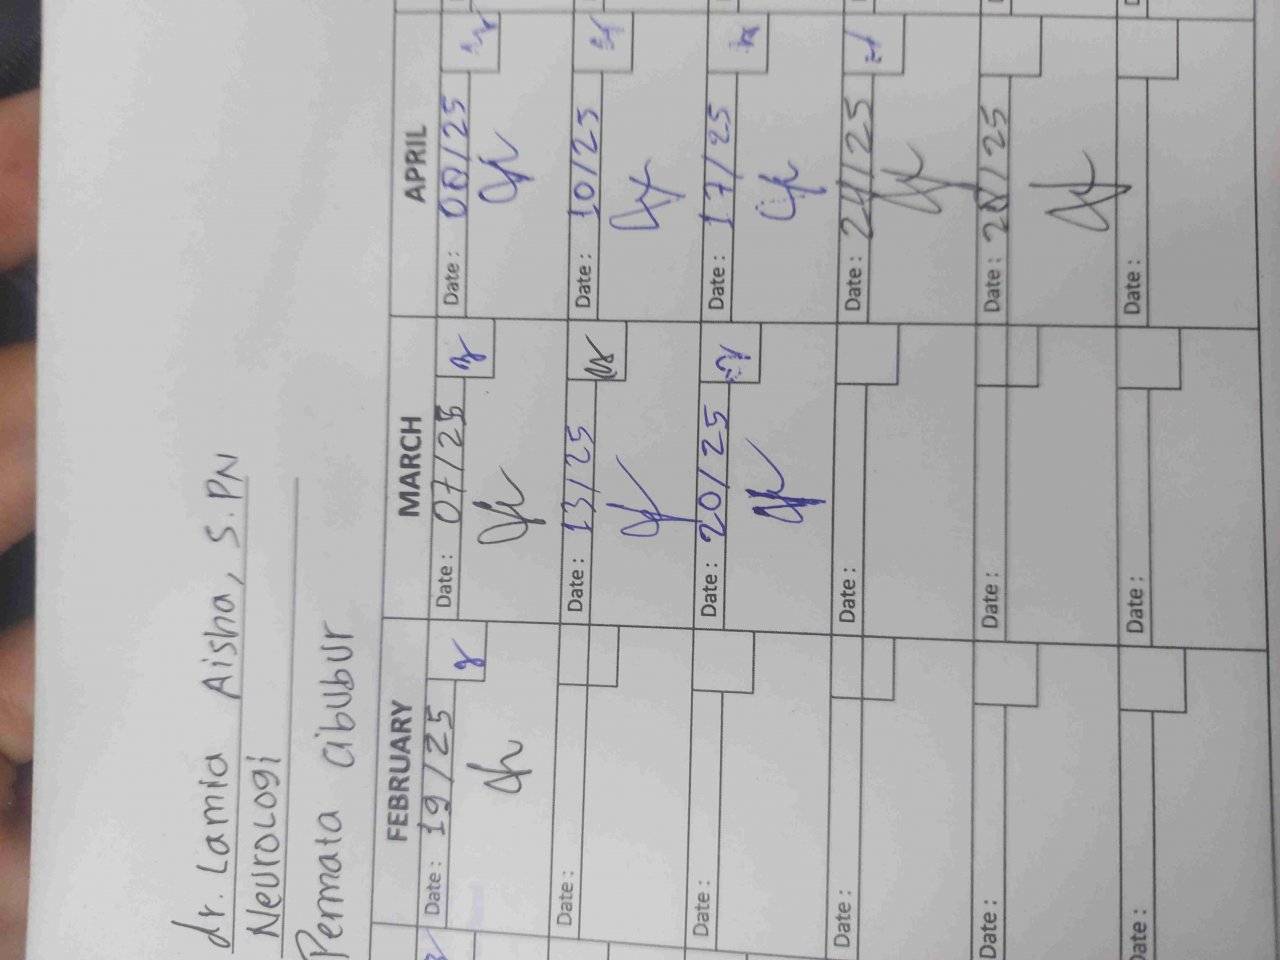 dr. Lamia Aisha, S.PN
Neurologi
Permata cibubur
FEBRUARY MARCH APRIL
Date: 19/25 Date: 07/25 Date: 08/25
Date: Date: 13/25 Date: 10/25
Date: Date: 20/25 Date: 17/25
Date: Date: Date: 24/25
Date: Date: Date:
Date: Date: Date: